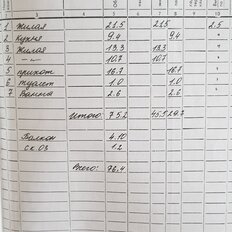 3 4 5 6 7 8 9 10
1 Жилая 21.5 21.5 2.5
2 Кухня 9.4 9.4 "
3 Жилая 13.3 13.3 "
4 —"— 10.7 10.7 "
5 прихож 16.7 16.7 "
6 туалет 1.0 1.0 "
7 Ванна 2.6 2.6 "
Итого: 75.2 45.5 29.7
Балкон 4.10
ск 0.3 1.2
Всего: 76.4